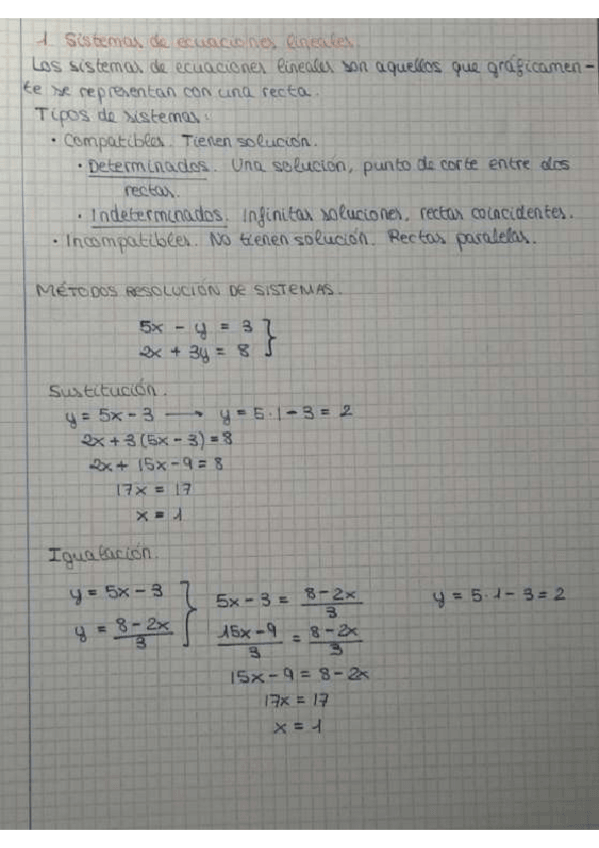 1. Sistemas de ecuaciones lineales.
Los sistemas de ecuaciones lineales son aquellos que gráficamen-
te se representan con una recta.
Tipos de sistemas:
· Compatibles. Tienen solución.
· Determinados. Una solución, punto de corte entre dos
rectas.
· Indeterminados. Infinitas soluciones, rectas coincidentes.
· Incompatibles. No tienen solución. Rectas paralelas.
MÉTODOS RESOLUCIÓN DE SISTEMAS.
5x - y = 3 }
2x + 3y = 8
Sustitución.
y = 5x - 3 → y = 5·1 - 3 = 2
2x + 3(5x - 3) = 8
2x + 15x - 9 = 8
17x = 17
x = 1
Igualación.
y = 5x - 3 } 5x - 3 = (8 - 2x)/3 y = 5·1 - 3 = 2
y = (8 - 2x)/3 (15x - 9)/3 = (8 - 2x)/3
15x - 9 = 8 - 2x
17x = 17
x = 1